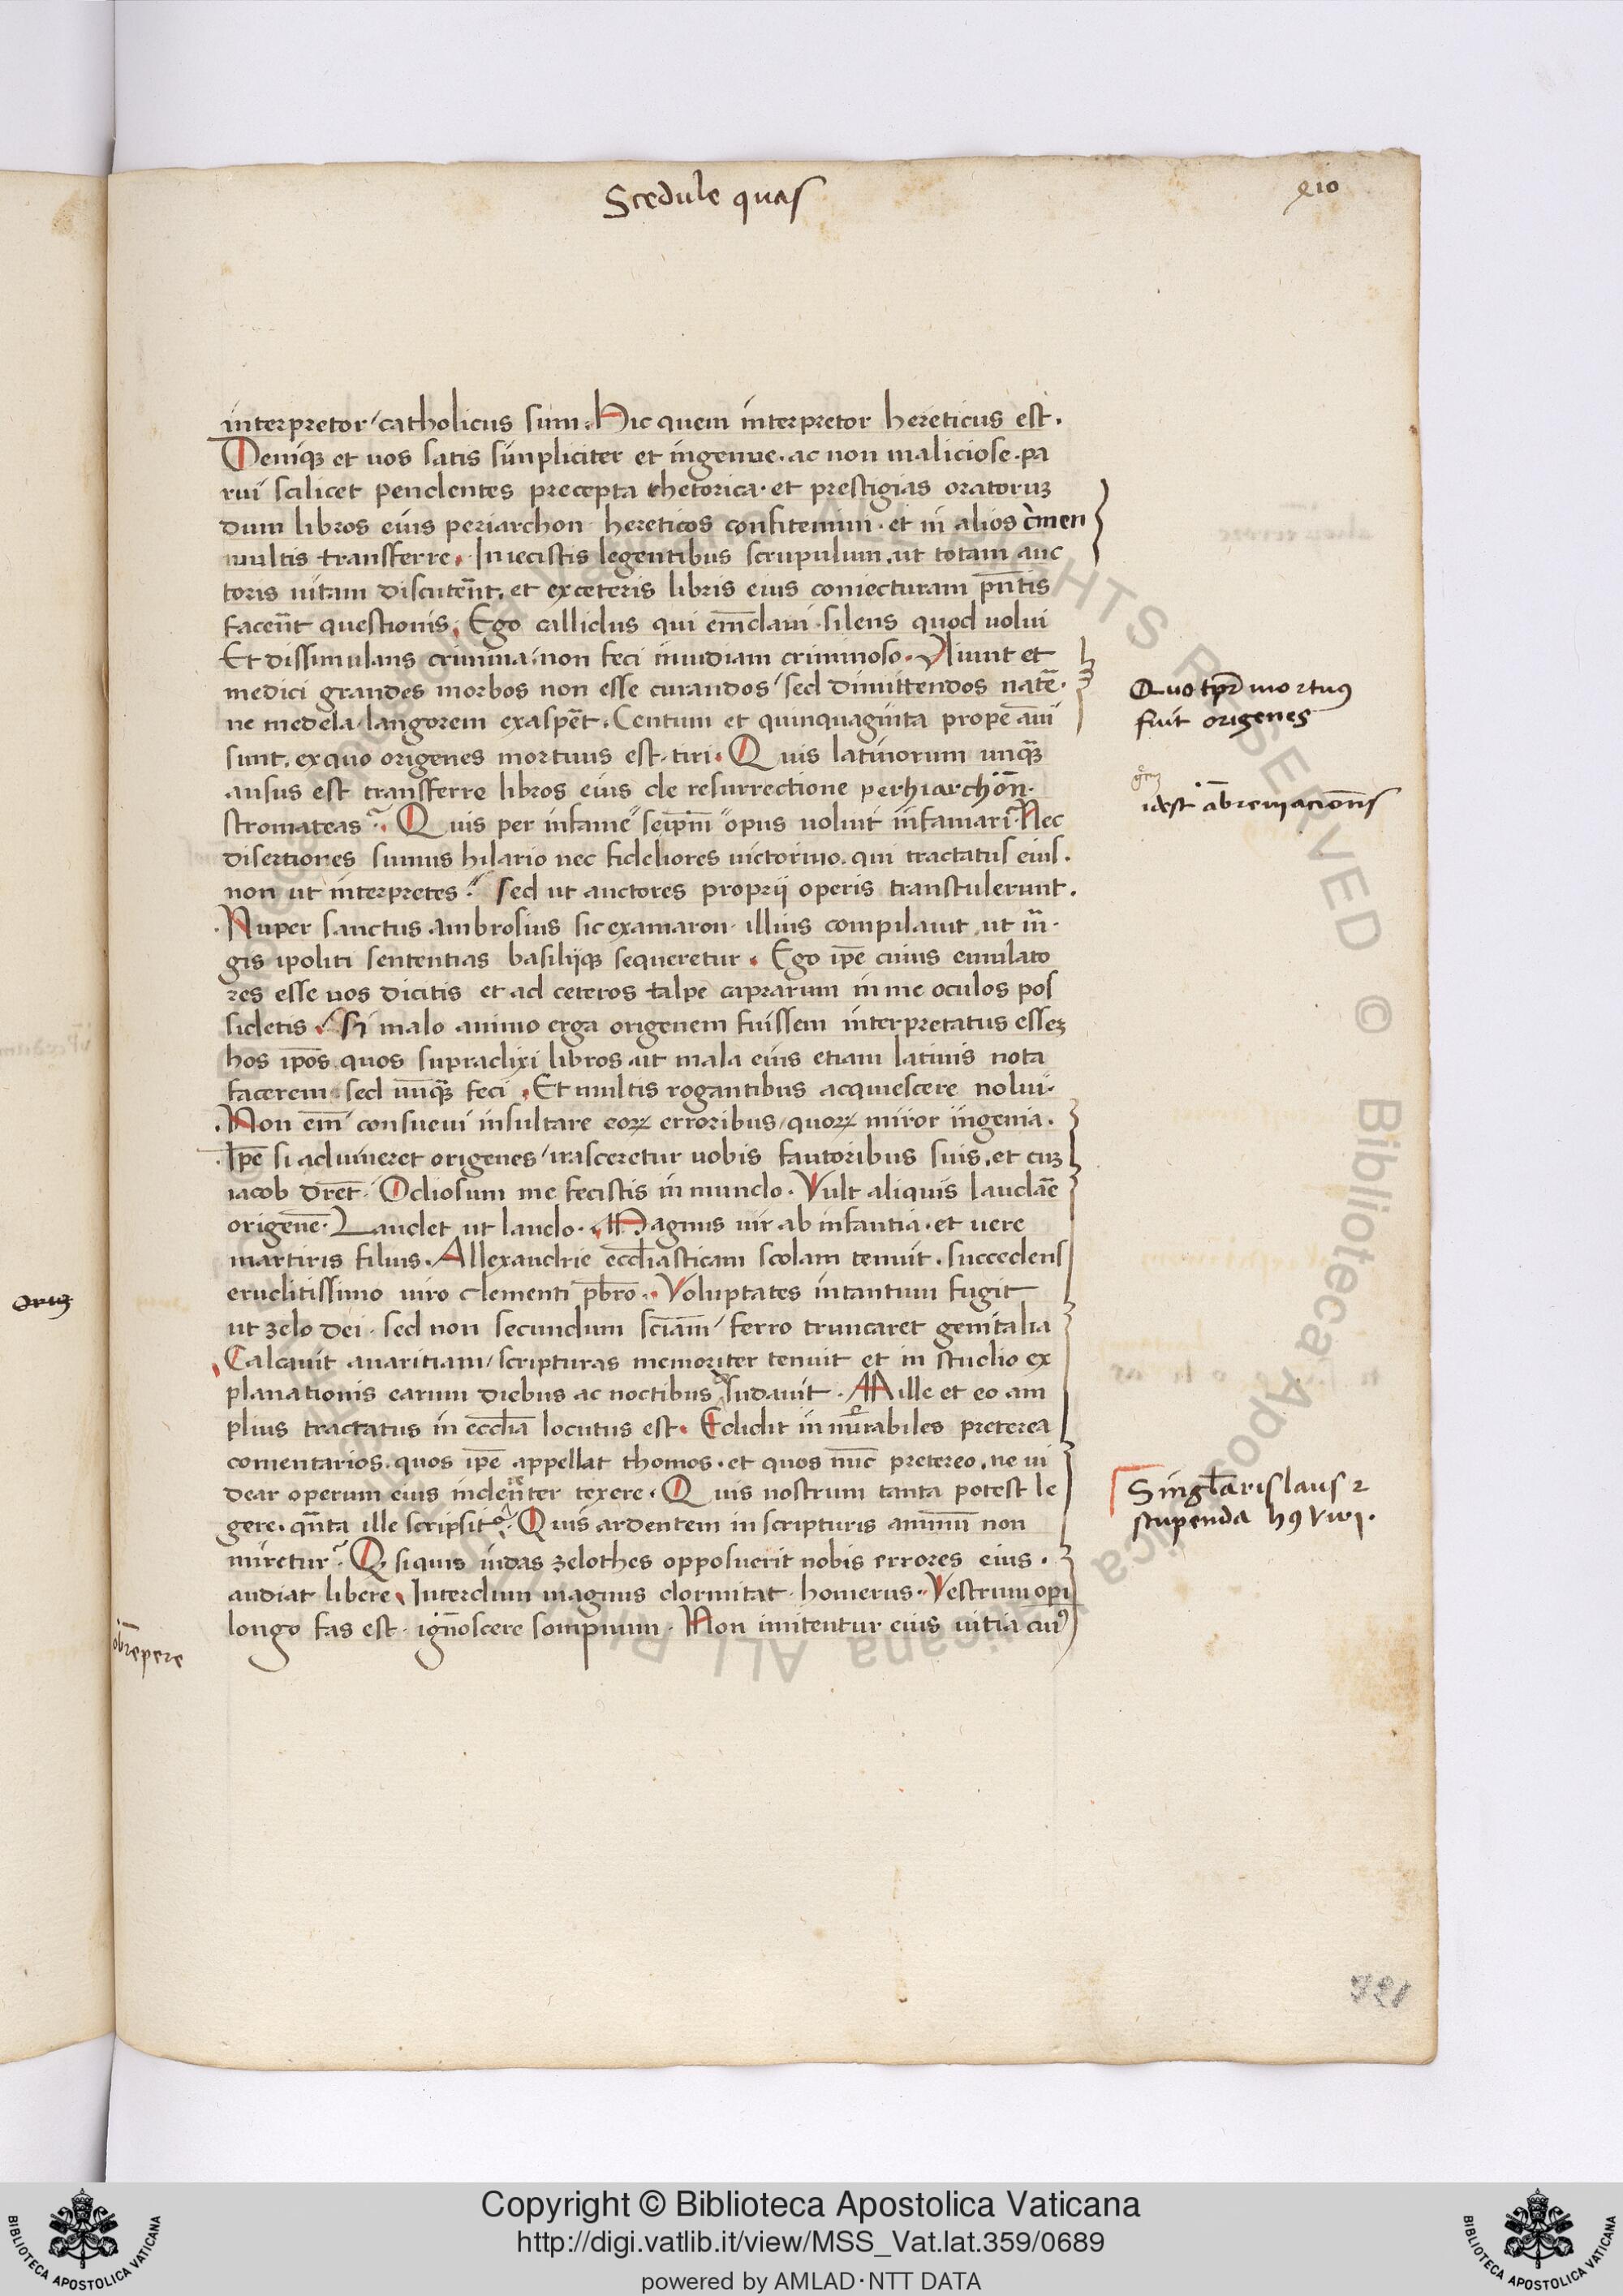 Scedule quas
interpretor / catholicus sum. Hic quem interpretor hereticus est.
Deniqꝫ et uos satis simpliciter et ingenue. ac non maliciose. pa
rui scilicet pendentes precepta rhetorica. et prestigias oratoruꝫ
dum libros eius periarchon hereticos confitemini. et in alios c̄men
multis transferre. Iniecistis legentibus scrupulum. ut totam auc
toris uitam discutēnt. et exceteris libris eius coniecturam pn̄tis
facen̄t questionis. Ego callidus qui em̄daui. silens quod uolui
Et dissimulans crimina. non feci inuidiam criminoso. Aiunt et
medici grandes morbos non esse curandos / sed dimittendos natē.
ne medela langorem exaspēt. Centum et quinquaginta prope anī
sunt. exquo origenes mortuus est. tiri. Quis latinorum unqꝫ
ausus est transferre libros eius de resurrectione perhiarchōn.
stromateas? Quis per infame seipm̄ opus uoluit infamari? Nec
disertiores sumus hilario nec fideliores uictorino. qui tractatus eius.
non ut interpretes? sed ut auctores proprij operis transtulerunt.
Nuper sanctus ambrosius sic examaron illius compilauit. ut m̄
gis ipoliti sententias basilijqꝫ sequeretur. Ego ip̄e cuius emulato
res esse uos dicitis et ad ceteros talpe caprarum in me oculos pos
sidetis. Si malo animo erga origenem fuissem interpretatus esseꝫ
hos ip̄os quos supradixi libros ut mala eius etiam latinis nota
facerem. sed nūqꝫ feci. Et multis rogantibus acquiescere nolui.
Non em̄ consueui insultare eoꝝ erroribus / quoꝝ miror ingenia.
Ip̄e si aduiueret origenes / irasceretur uobis fautoribus suis. et cuꝫ
iacob dr̄et. Odiosum me fecistis in mundo. Vult aliquis laudāe
origenē. Laudet ut laudo. Magnus uir ab infantia. et uere
martiris filius. Allexandrie eccl̄iasticam scolam tenuit. succedens
eruditissimo uiro clementi pb̄ro. Voluptates intantum fugit
ut zelo dei. sed non secundum sciām / ferro truncaret genitalia
Calcauit auaritiam / scripturas memoriter tenuit et in studio ex
planationis earum diebus ac noctibus sudauit. Mille et eo am
plius tractatus in eccl̄ia locutus est. Edidit in nūrabiles preterea
comentarios. quos ip̄e appellat thomos. et quos nūc pretereo. ne ui
dear operum eius inden̄ter texere. Quis nostrum tanta potest le
gere. qn̄ta ille scripsit? Quis ardentem in scripturis animum non
miretur? Q siquis iudas zelothes opposuerit nobis errores eius.
audiat libere. Interdum magnus dormitat homerus. Vestrum opi
longo fas est. ign̄oscere sompnum. Non imitentur eius uitia cuiꝰ
Quo tpr̄e mortuꝰ
fuit origenes
idest ab̄reuiaciōns
Singl̄aris laus ⁊
stupenda hꝰ viri.
321
Copyright © Biblioteca Apostolica Vaticana
http://digi.vatlib.it/view/MSS_Vat.lat.359/0689
powered by AMLAD·NTT DATA
BIBLIOTECA APOSTOLICA VATICANA
BIBLIOTECA APOSTOLICA VATICANA